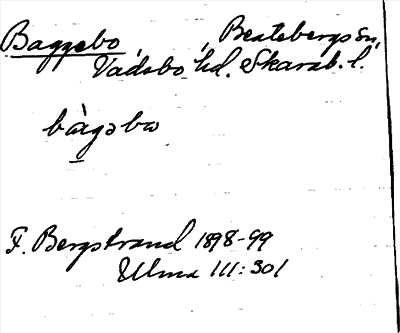 Baggebo, Beatebergs sn,
Vadsbo hd. Skarab. l.
bàgəbo
F. Bergstrand 1898-99
Ulma 111:301